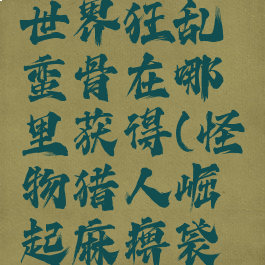 世界狂乱
蛮骨在哪
里获得(怪
物猎人崛
起麻痹袋